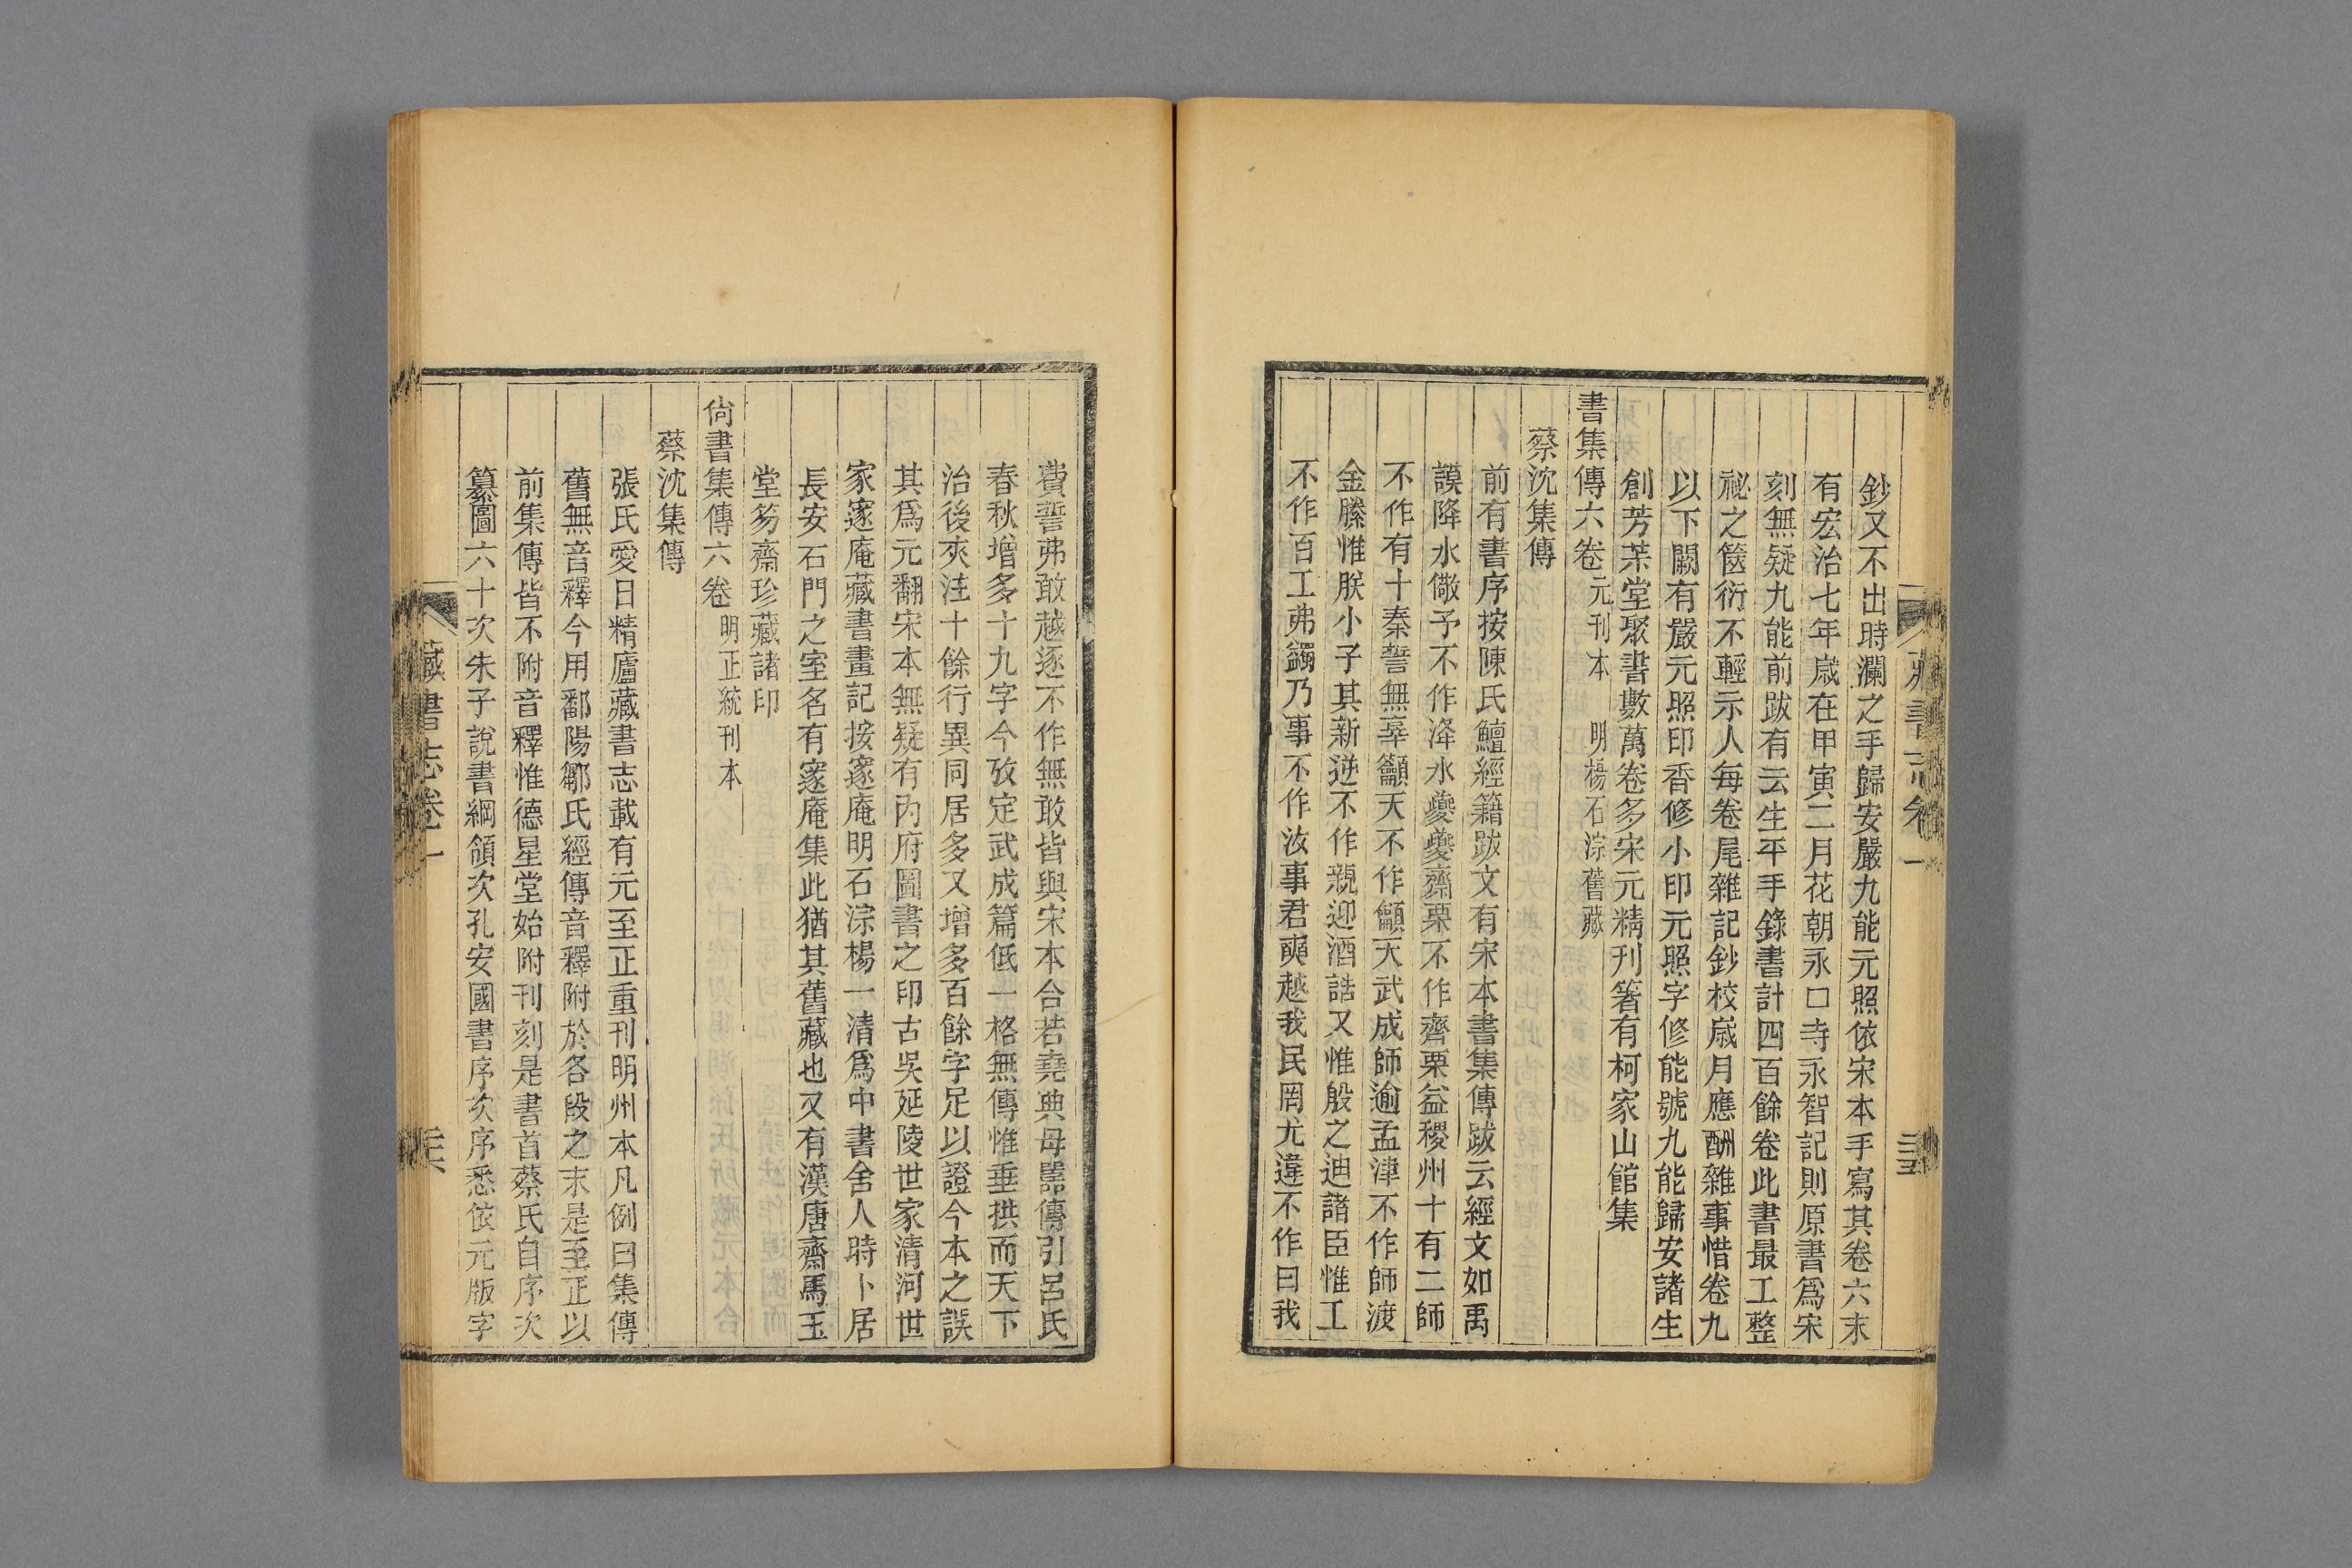 鈔又不出時瀾之手歸安嚴九能元照依宋本手寫其卷六末
有宏治七年歲在甲寅二月花朝永口寺永智記則原書爲宋
刻無疑九能前跋有云生平手錄書計四百餘卷此書最工整
祕之篋衍不輕示人每卷尾雜記鈔校歲月應酬雜事惜卷九
以下闕有嚴元照印香修小印元照字修能號九能歸安諸生
創芳茉堂聚書數萬卷多宋元精刊箸有柯家山館集
書集傳六卷 元刊本 明楊石淙舊藏
蔡沈集傳
前有書序按陳氏鱣經籍跋文有宋本書集傳跋云經文如禹
謨降水儆予不作洚水夔夔齋栗不作齊栗益稷州十有二師
不作有十秦誓無辜籲天不作龥天武成師逾孟津不作師渡
金縢惟朕小子其新逆不作親迎酒誥又惟殷之迪諸臣惟工
不作百工弗蠲乃事不作汝事君奭越我民罔尤違不作曰我
費誓弗敢越逐不作無敢皆與宋本合若堯典毋嚚傳引呂氏
春秋增多十九字今攷定武成篇低一格無傳惟垂拱而天下
治後夾注十餘行異同居多又增多百餘字足以證今本之誤
其爲元翻宋本無疑有內府圖書之印古吳延陵世家清河世
家邃庵藏書畫記按邃庵明石淙楊一清爲中書舍人時卜居
長安石門之室名有邃庵集此猶其舊藏也又有漢唐齋馬玉
堂笏齋珍藏諸印
尙書集傳六卷 明正統刊本
蔡沈集傳
張氏愛日精廬藏書志載有元至正重刊明州本凡例曰集傳
舊無音釋今用鄱陽鄒氏經傳音釋附於各段之末是至正以
前集傳皆不附音釋惟德星堂始附刊刻是書首蔡氏自序次
纂圖六十次朱子說書綱領次孔安國書序次序悉依元版字
藏書志卷一